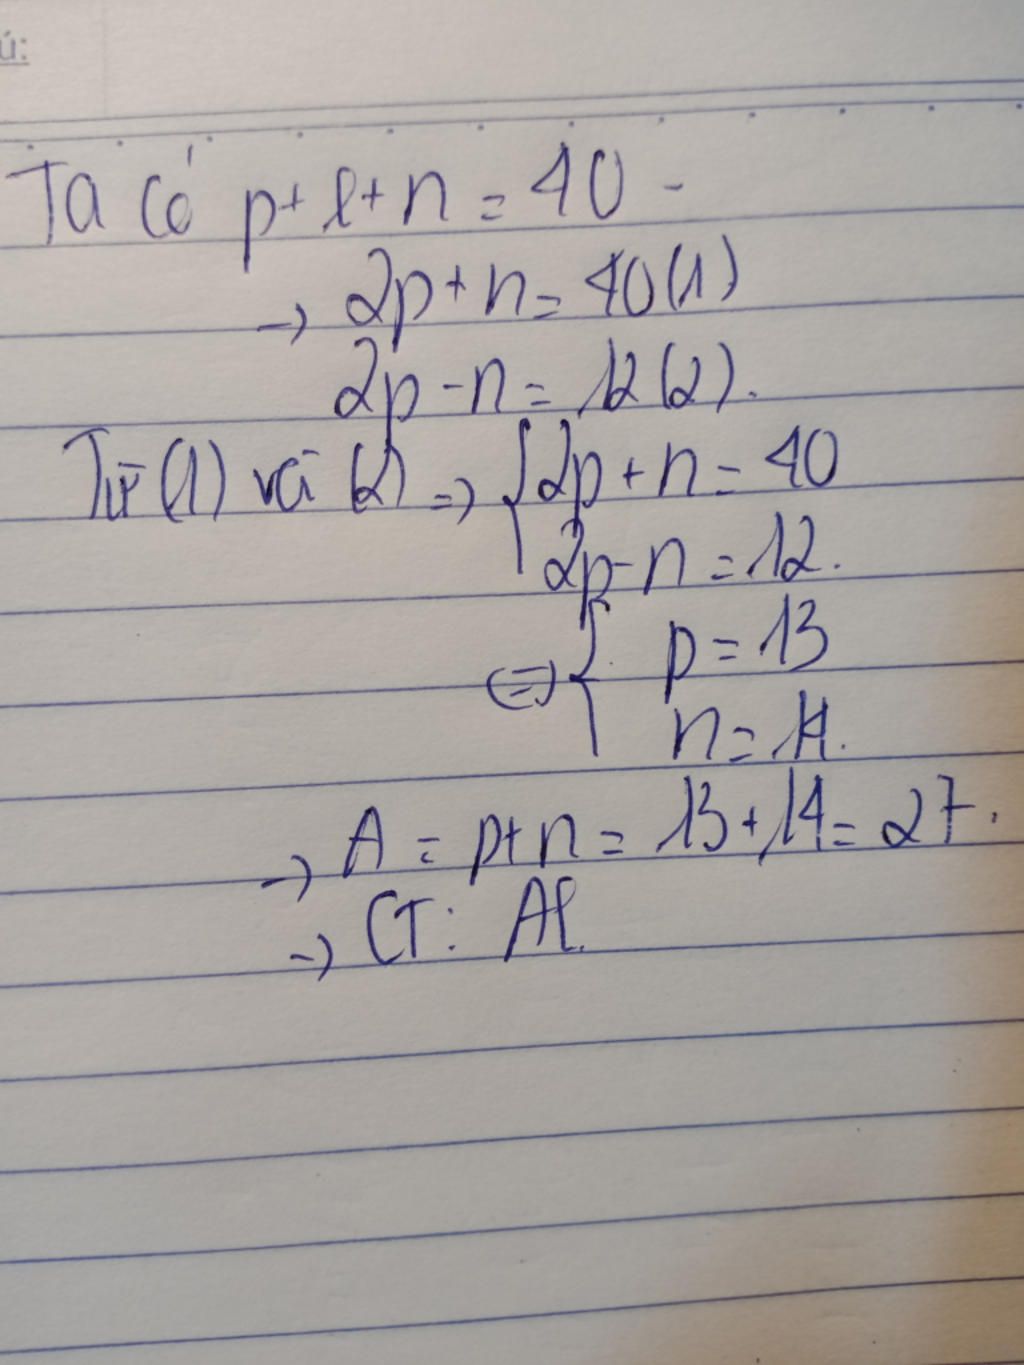 ú:
Ta có p+e+n=40-
→ 2p+n=40(1)
2p-n=12(2).
Từ (1) và (2) => {2p+n=40
2p-n=12.
<=> { p=13
n=14.
→ A=p+n=13+14=27.
→ CT: Al.